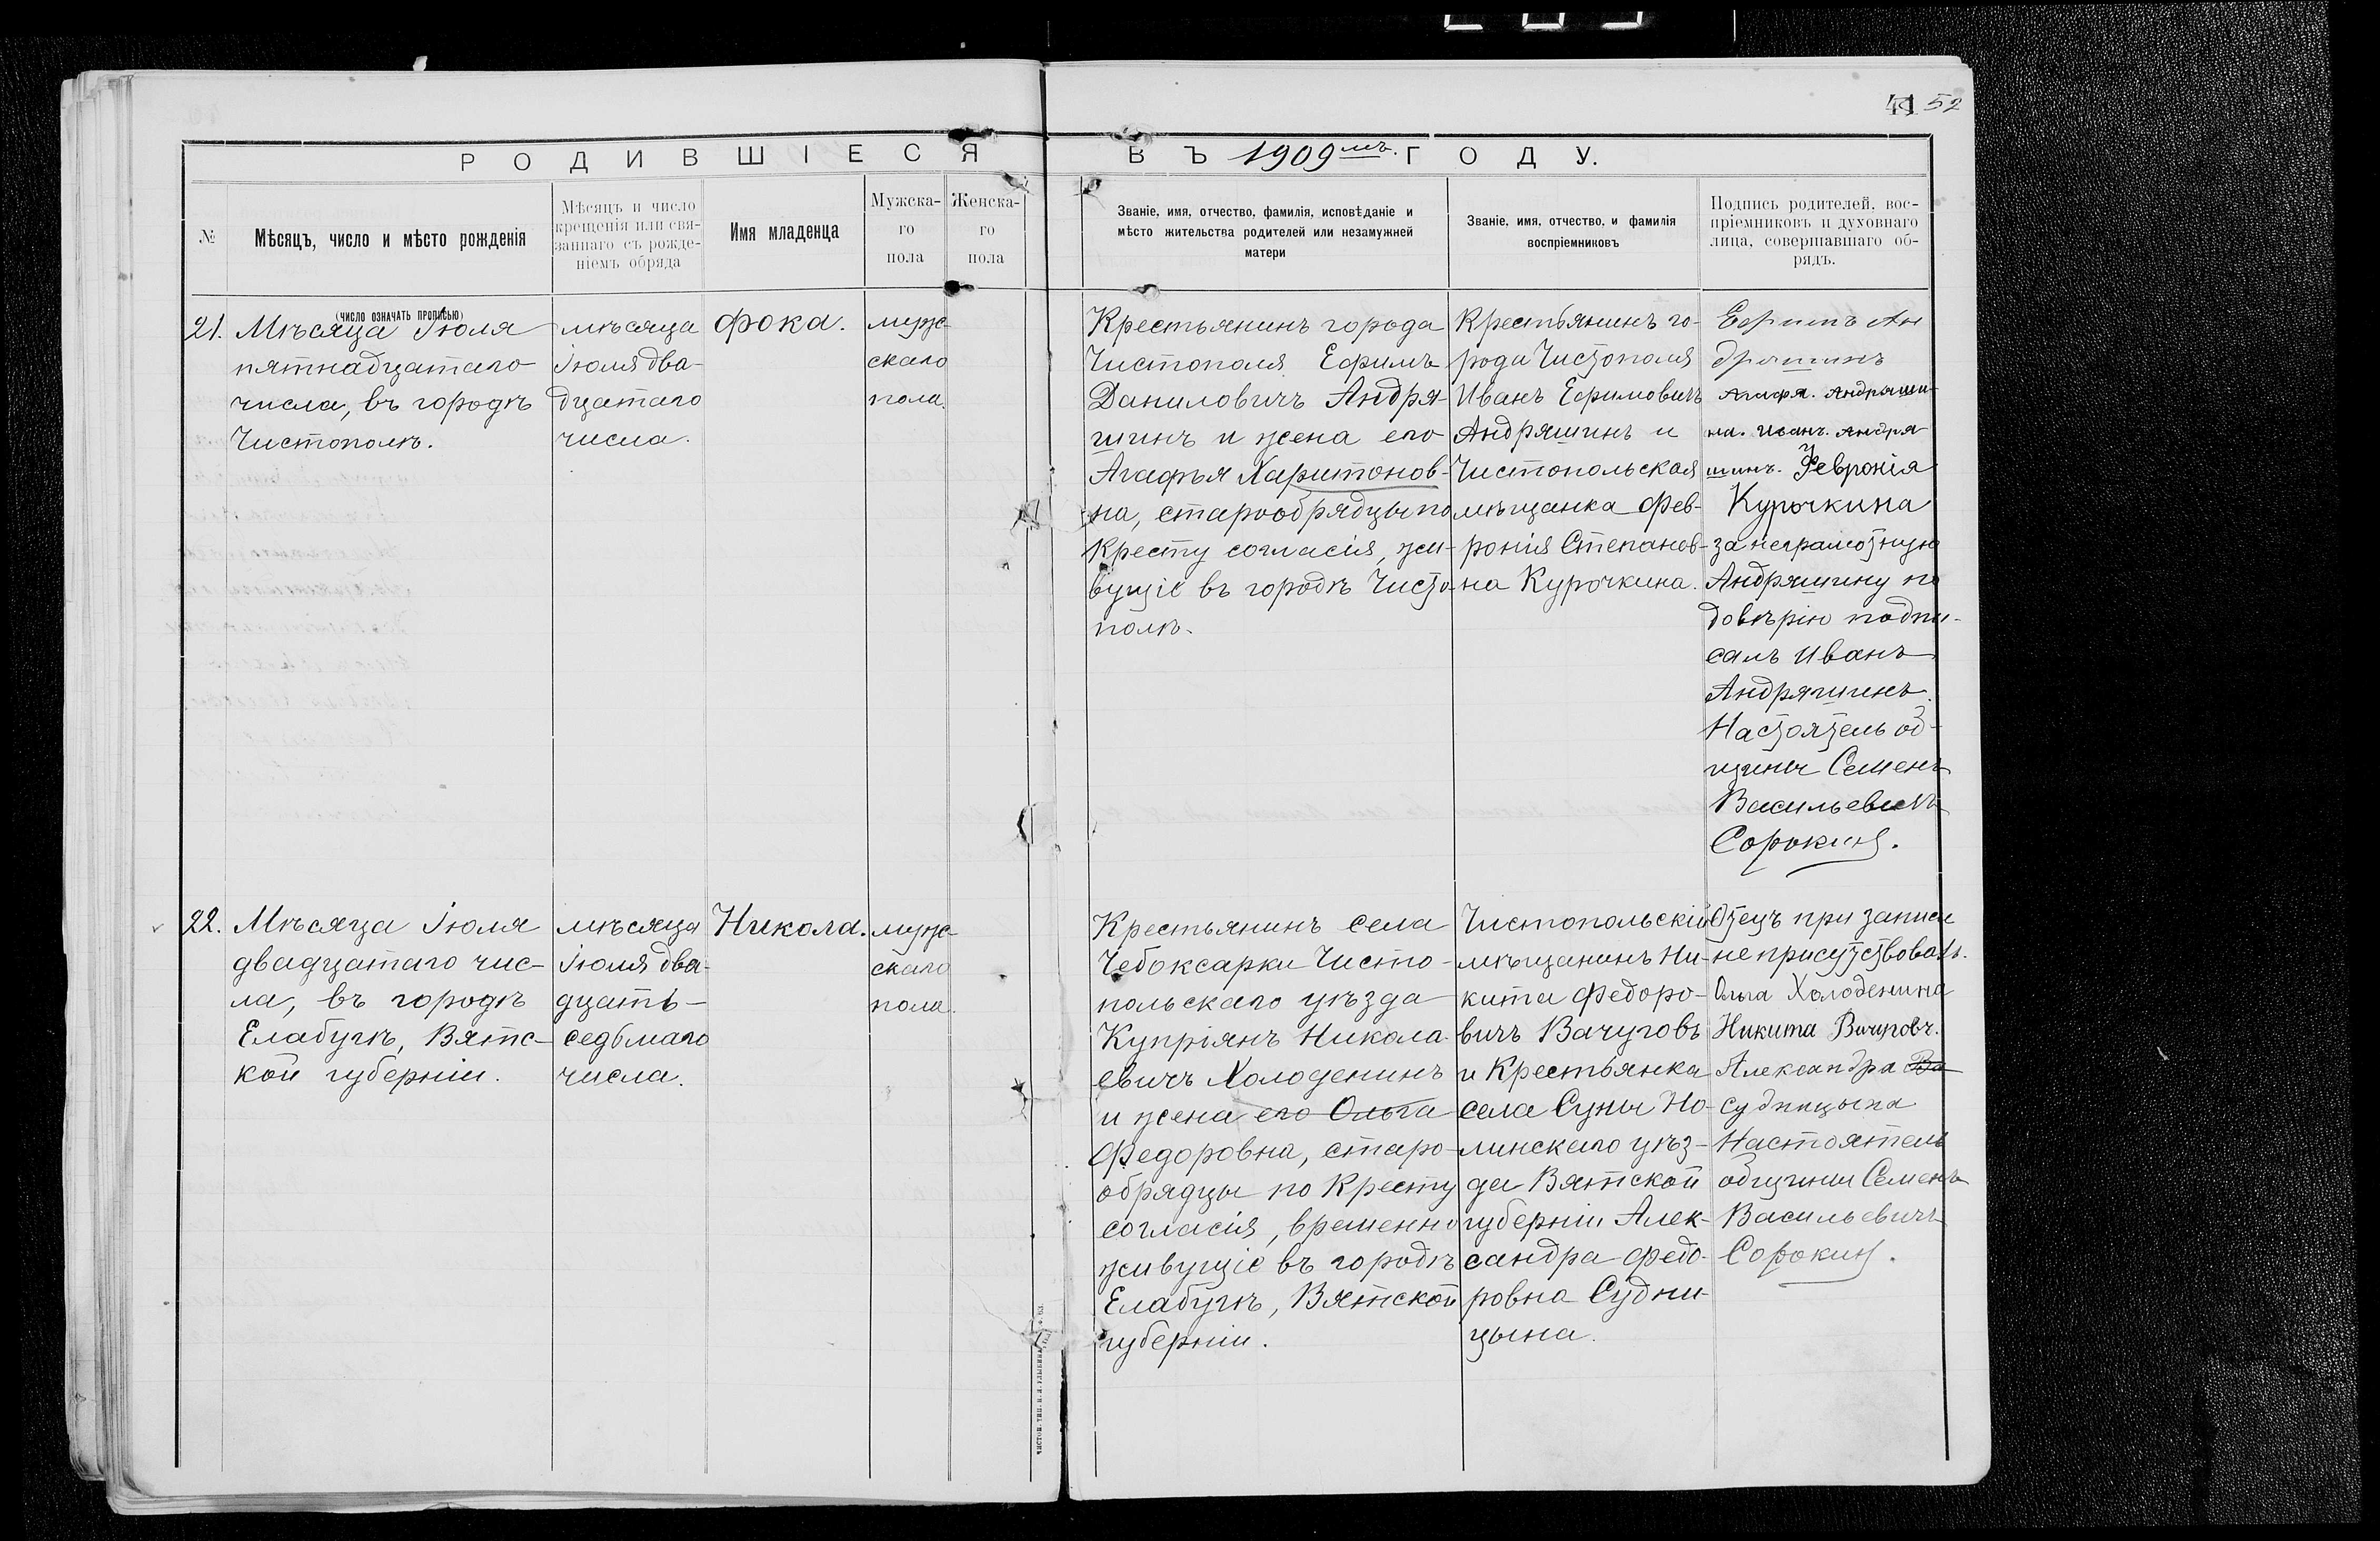 41 52
РОДИВШІЕСЯ ВЪ 1909 мъ. ГОДУ.
№
Мѣсяцъ, число и мѣсто рожденія
Мѣсяцъ и число
крещенія или свя-
заннаго съ рожде-
ніемъ обряда
Имя младенца
Мужска-
го
пола
Женска-
го
пола
Званіе, имя, отчество, фамилія, исповѣданіе и
мѣсто жительства родителей или незамужней
матери
Званіе, имя, отчество, и фамилія
воспріемниковъ
Подпись родителей, вос-
пріемниковъ и духовнаго
лица, совершавшаго об-
рядъ.
(число означать прописью)
21.
Мѣсяца Іюля
пятнадцатаго
числа, въ городѣ
Чистополѣ.
мѣсяца
Іюля два-
дцатаго
числа.
Фока.
муж-
скаго
пола.
Крестьянинъ города
Чистополя Ефимъ
Даниловичъ Андря-
шинъ и жена его
Агафья Харитонов-
на, старообрядцы по
Кресту согласія, жи-
вущіе въ городѣ Чисто-
полѣ.
Крестьянинъ го-
рода Чистополя
Иванъ Ефимовичъ
Андряшинъ и
Чистопольская
мѣщанка Фев-
ронія Степанов-
на Курочкина.
Ефимъ Ан
дряшинъ
Агафя. Андряши-
на. Иванъ. Андря
шинъ. Февронія
Курочкина
за неграмотную
Андряшину по
довѣрію подпи-
салъ Иванъ
Андряшинъ.
Настоятель об-
щины Семенъ
Васильевичъ
Сорокинъ.
22.
Мѣсяца Іюля
двадцатаго чис-
ла, въ городѣ
Елабугѣ, Вятс-
кой губерніи.
мѣсяца
Іюля два-
дцать-
седьмаго
числа.
Никола.
муж-
скаго
пола.
Крестьянинъ села
Чебоксарки Чисто-
польскаго уѣзда
Купріянъ Никола-
евичъ Холоденинъ
и жена его Ольга
Федоровна, старо-
обрядцы по Кресту
согласія, временно
живущіе въ городѣ
Елабугѣ, Вятской
губерніи.
Чистопольскій
мѣщанинъ Ни-
кита Федоро-
вичъ Вачуговъ
и Крестьянка
села Суны Но-
линскаго уѣз-
да Вятской
губерніи Алек-
сандра Федо-
ровна Судни-
цына.
Отецъ при записи
не присутствовалъ.
Ольга Холоденина
Никита Вачуговъ.
Александра Ва
Судницына
Настоятель
общины Семенъ
Васильевичъ
Сорокинъ.